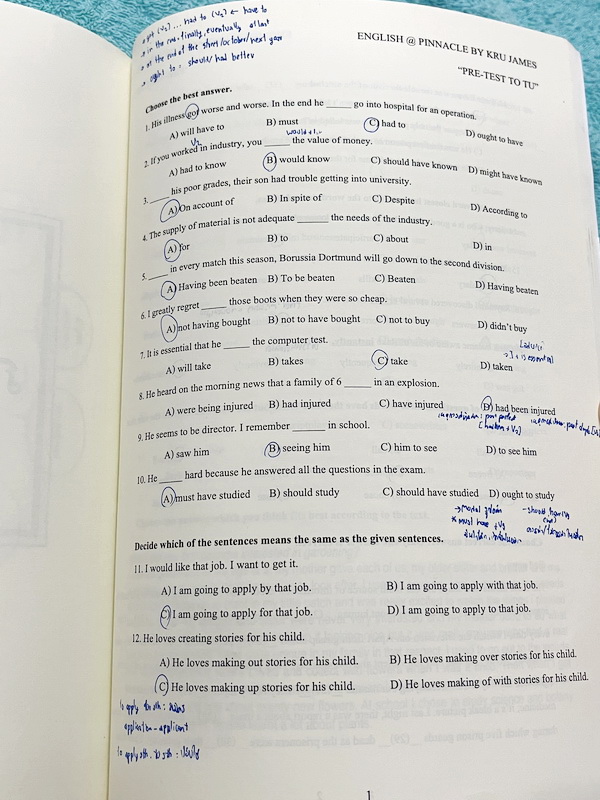 get (V₃)... had to (V₁) ← have to
in the end = finally, eventually, at last
at the end of the street/october/next year
ought to = should/had better
ENGLISH @ PINNACLE BY KRU JAMES
"PRE-TEST TO TU"
Choose the best answer.
1. His illness got worse and worse. In the end he _____ go into hospital for an operation.
A) will have to B) must C) had to D) ought to have
V₂
2. If you worked in industry, you _____ the value of money.
A) had to know B) would know C) should have known D) might have known
3. _____ his poor grades, their son had trouble getting into university.
A) On account of B) In spite of C) Despite D) According to
4. The supply of material is not adequate ______ the needs of the industry.
A) for B) to C) about D) in
5. ____ in every match this season, Borussia Dortmund will go down to the second division.
A) Having been beaten B) To be beaten C) Beaten D) Having beaten
6. I greatly regret _____ those boots when they were so cheap.
A) not having bought B) not to have bought C) not to buy D) didn't buy
7. It is essential that he _____ the computer test.
A) will take B) takes C) take D) taken
8. He heard on the morning news that a family of 6 _____ in an explosion.
A) were being injured B) had injured C) have injured D) had been injured
9. He seems to be director. I remember ______ in school.
A) saw him B) seeing him C) him to see D) to see him
10. He ____ hard because he answered all the questions in the exam.
A) must have studied B) should study C) should have studied D) ought to study
Decide which of the sentences means the same as the given sentences.
11. I would like that job. I want to get it.
A) I am going to apply by that job. B) I am going to apply with that job.
C) I am going to apply for that job. D) I am going to apply to that job.
12. He loves creating stories for his child.
A) He loves making out stories for his child. B) He loves making over stories for his child.
C) He loves making up stories for his child. D) He loves making of with stories for his child.
to apply for sth :
application - applicant
to apply sth. to sth :
1